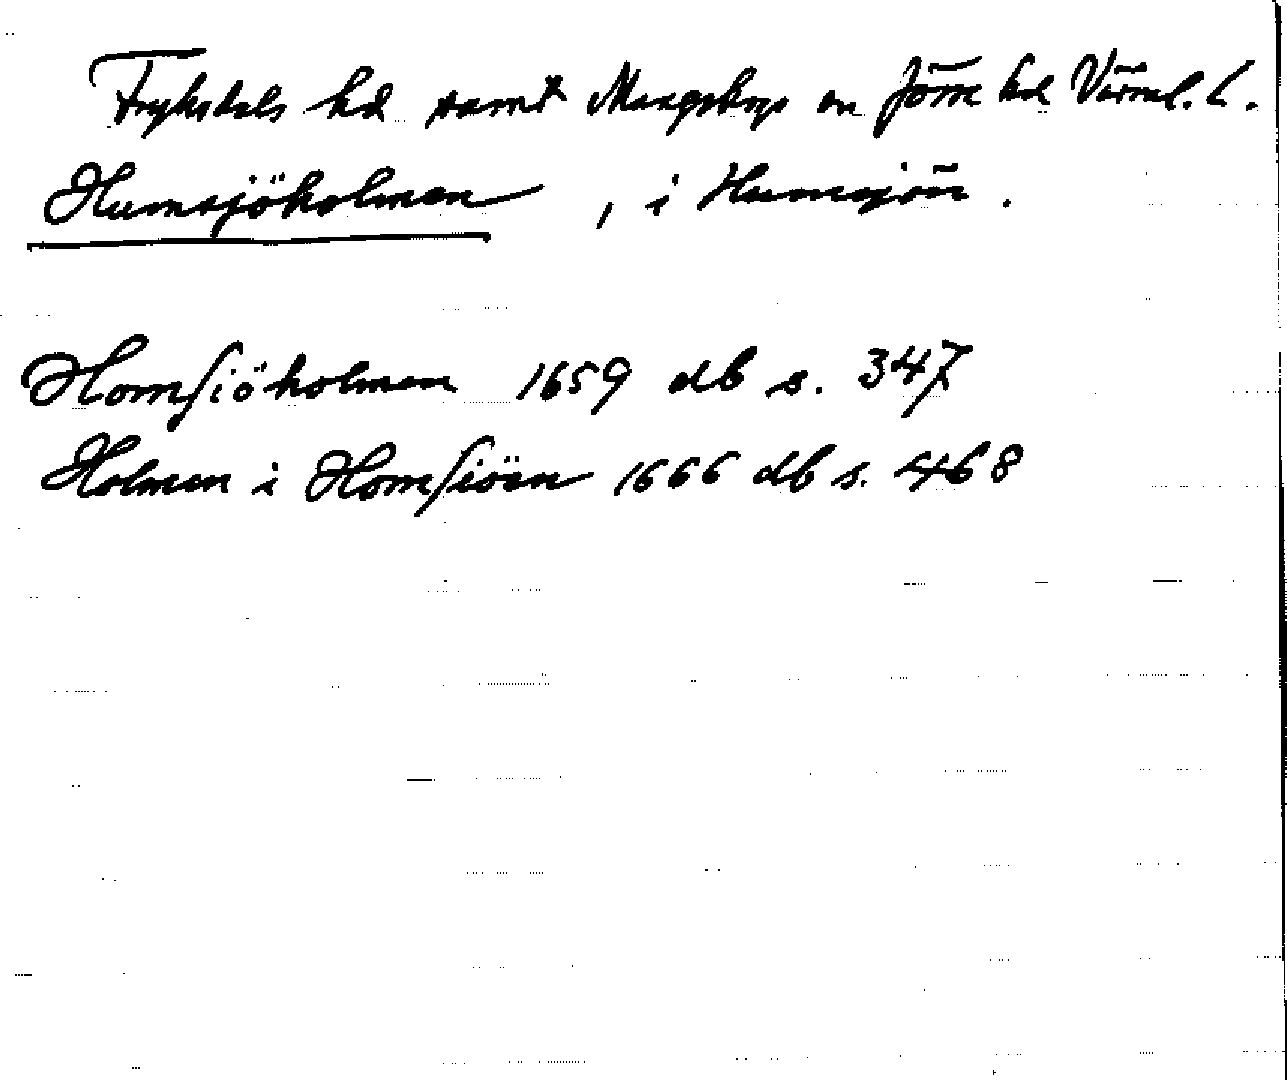 Fryksdals hd samt Mangskogs sn Jösse hd Värml. l.
Humsjöholmen , i Humsjön .
Homsiöholmen 1659 db s. 347
Holmen i Homsiöen 1666 db s. 468